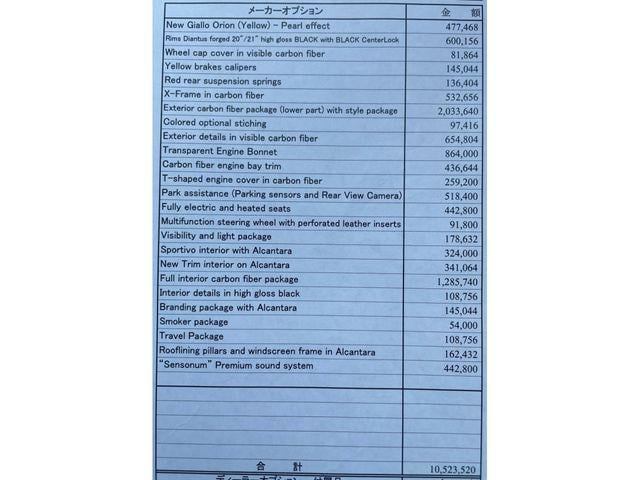 メーカーオプション 金 額
New Giallo Orion (Yellow) - Pearl effect 477,468
Rims Diantus forged 20"/21" high gloss BLACK with BLACK CenterLock 600,156
Wheel cap cover in visible carbon fiber 81,864
Yellow brakes calipers 145,044
Red rear suspension springs 136,404
X-Frame in carbon fiber 532,656
Exterior carbon fiber package (lower part) with style package 2,033,640
Colored optional stiching 97,416
Exterior details in visible carbon fiber 654,804
Transparent Engine Bonnet 864,000
Carbon fiber engine bay trim 436,644
T-shaped engine cover in carbon fiber 259,200
Park assistance (Parking sensors and Rear View Camera) 518,400
Fully electric and heated seats 442,800
Multifunction steering wheel with perforated leather inserts 91,800
Visibility and light package 178,632
Sportivo interior with Alcantara 324,000
New Trim interior on Alcantara 341,064
Full interior carbon fiber package 1,285,740
Interior details in high gloss black 108,756
Branding package with Alcantara 145,044
Smoker package 54,000
Travel Package 108,756
Rooflining pillars and windscreen frame in Alcantara 162,432
"Sensonum" Premium sound system 442,800
合 計 10,523,520
ディーラーオプション・付属品